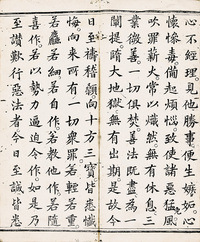 心不經理見他勝事便生嫉妬心
懷慘毒備起煩惱致使諸惡猛風
吹罪薪火常以熾然無有休息三
業微善一切俱焚善法既盡為一
闡提墮大地獄無有出期是故今
日至禱稽顙向十方三寶皆悉懺
悔向來所有一切衆罪若輕若重
若麤若細若自作若教他作若隨
喜作若以勢力逼迫令作如是乃
至讚歎行惡法者今日至誠皆悉